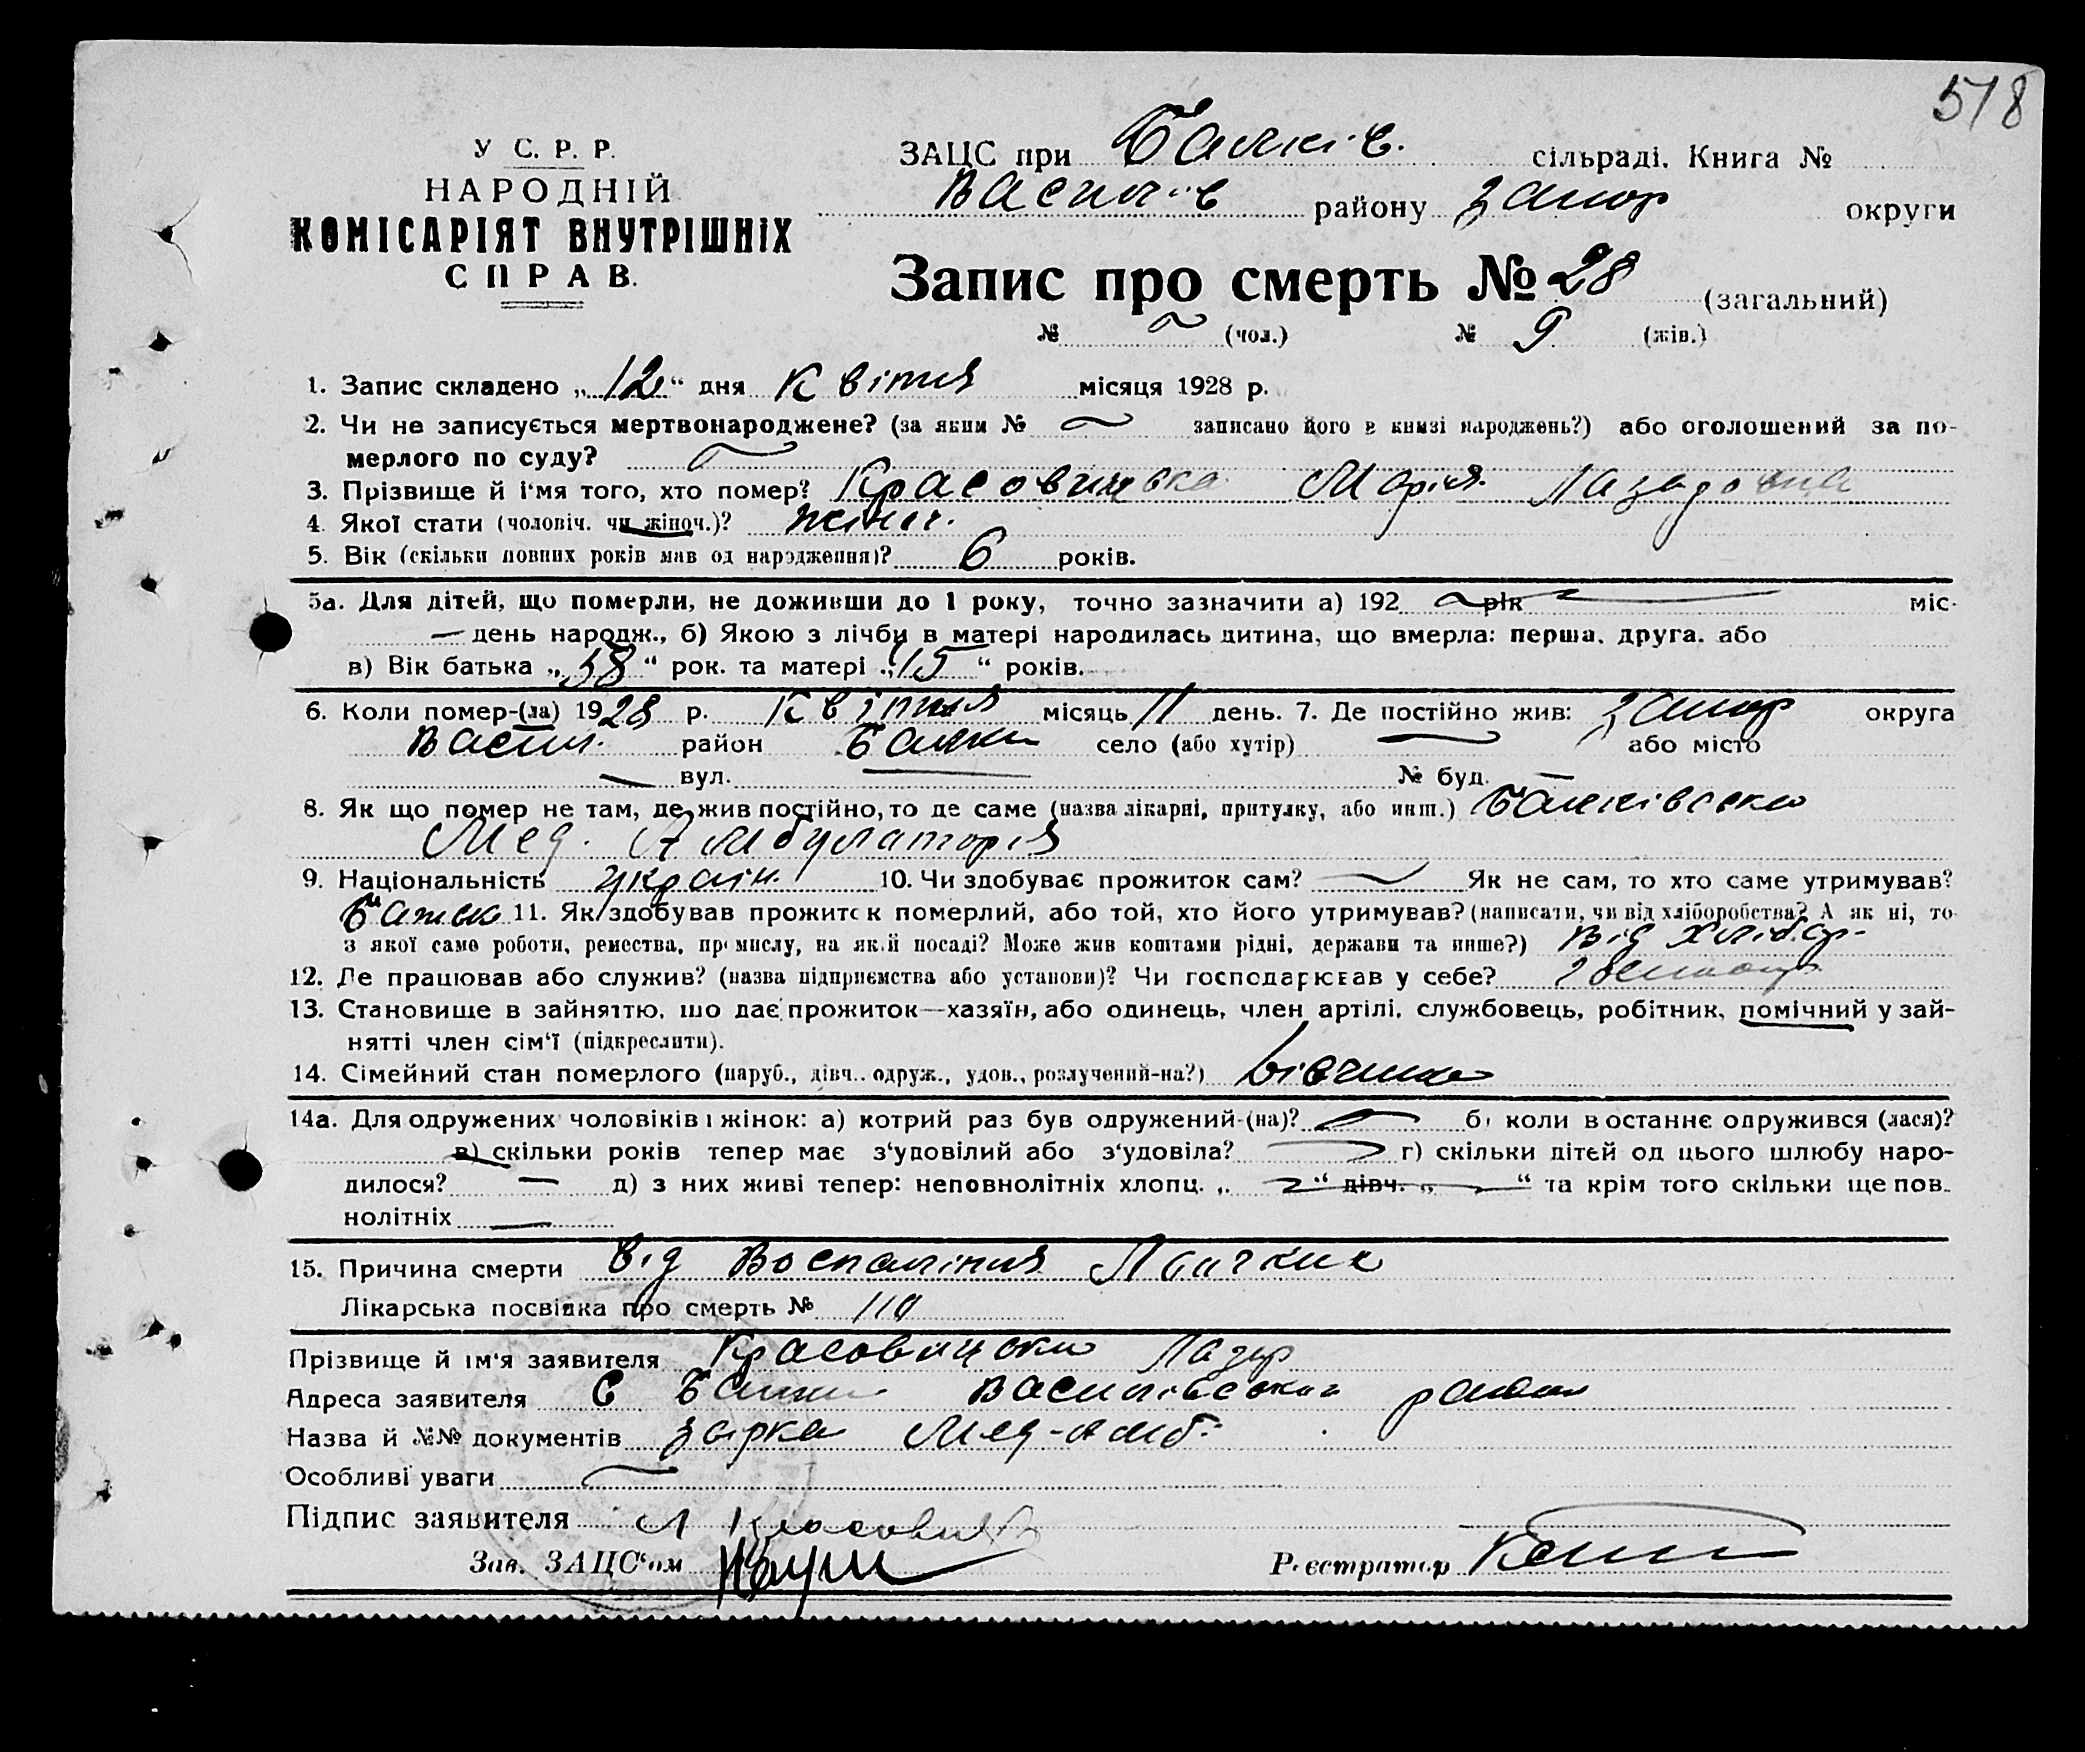 518
У С. Р. Р.
НАРОДНІЙ
КОМІСАРІЯТ ВНУТРІШНІХ
СПРАВ.
ЗАЦС при Балків. сільраді. Книга №
Василів району Запор округи
Запис про смерть № 28 (загальний)
№ (чол.) № 9 (жін.)
1. Запис складено „12“ дня Квітня місяця 1928 р.
2. Чи не записується мертвонароджене? (за яким № записано його в книзі народжень?) або оголошений за по-
мерлого по суду?
3. Прізвище й ім'я того, хто помер? Марія Лазаровна
4. Якої стати (чоловіч. чи жіноч.)? жіноч.
5. Вік (скільки повних років мав од народження)? 6 років.
5а. Для дітей, що померли, не доживши до 1 року, точно зазначити а) 192 рік міс.
день народж., б) Якою з лічби в матері народилась дитина, що вмерла: перша, друга, або
в) Вік батька „58“ рок. та матері „ “ років.
6. Коли помер-(ла) 1928 р. Квітня місяць 11 день. 7. Де постійно жив: Запор округа
Васил. район Балки село (або хутір) або місто
вул. № буд.
8. Як що помер не там, де жив постійно, то де саме (назва лікарні, притулку, або инш.) Балківська
Мед. Амбулаторія
9. Національність україн. 10. Чи здобуває прожиток сам? Як не сам, то хто саме утримував?
Батько 11. Як здобував прожиток померлий, або той, хто його утримував? (написати, чи від хліборобства? А як ні, то
з якої саме роботи, ремества, промислу, на якій посаді? Може жив коштами рідні, держави та инше?) Від Хлібор.
12. Де працював або служив? (назва підприємства або установи)? Чи господарював у себе?
13. Становище в зайняттю, що дає прожиток—хазяїн, або одинець, член артілі, службовець, робітник, помічний у зай-
нятті член сім'ї (підкреслити).
14. Сімейний стан померлого (паруб., дівч., одруж., удов., розлучений-на?) Дівчина
14а. Для одружених чоловіків і жінок: а) котрий раз був одружений-(на)? б) коли востаннє одружився (лася)?
в) скільки років тепер має з'удовілий або з'удовіла? г) скільки дітей од цього шлюбу наро-
дилося? д) з них живі тепер: неповнолітніх хлопц. „ “ дівч. „ “ та крім того скільки ще пов-
нолітніх
15. Причина смерти Від Воспаління
Лікарська посвідка про смерть № 110
Прізвище й ім'я заявителя Лазар
Адреса заявителя С Балки Василівського району
Назва й №№ документів Мед-амб.
Особливі уваги
Підпис заявителя Л
Зав. ЗАЦС'ом
Реєстратор